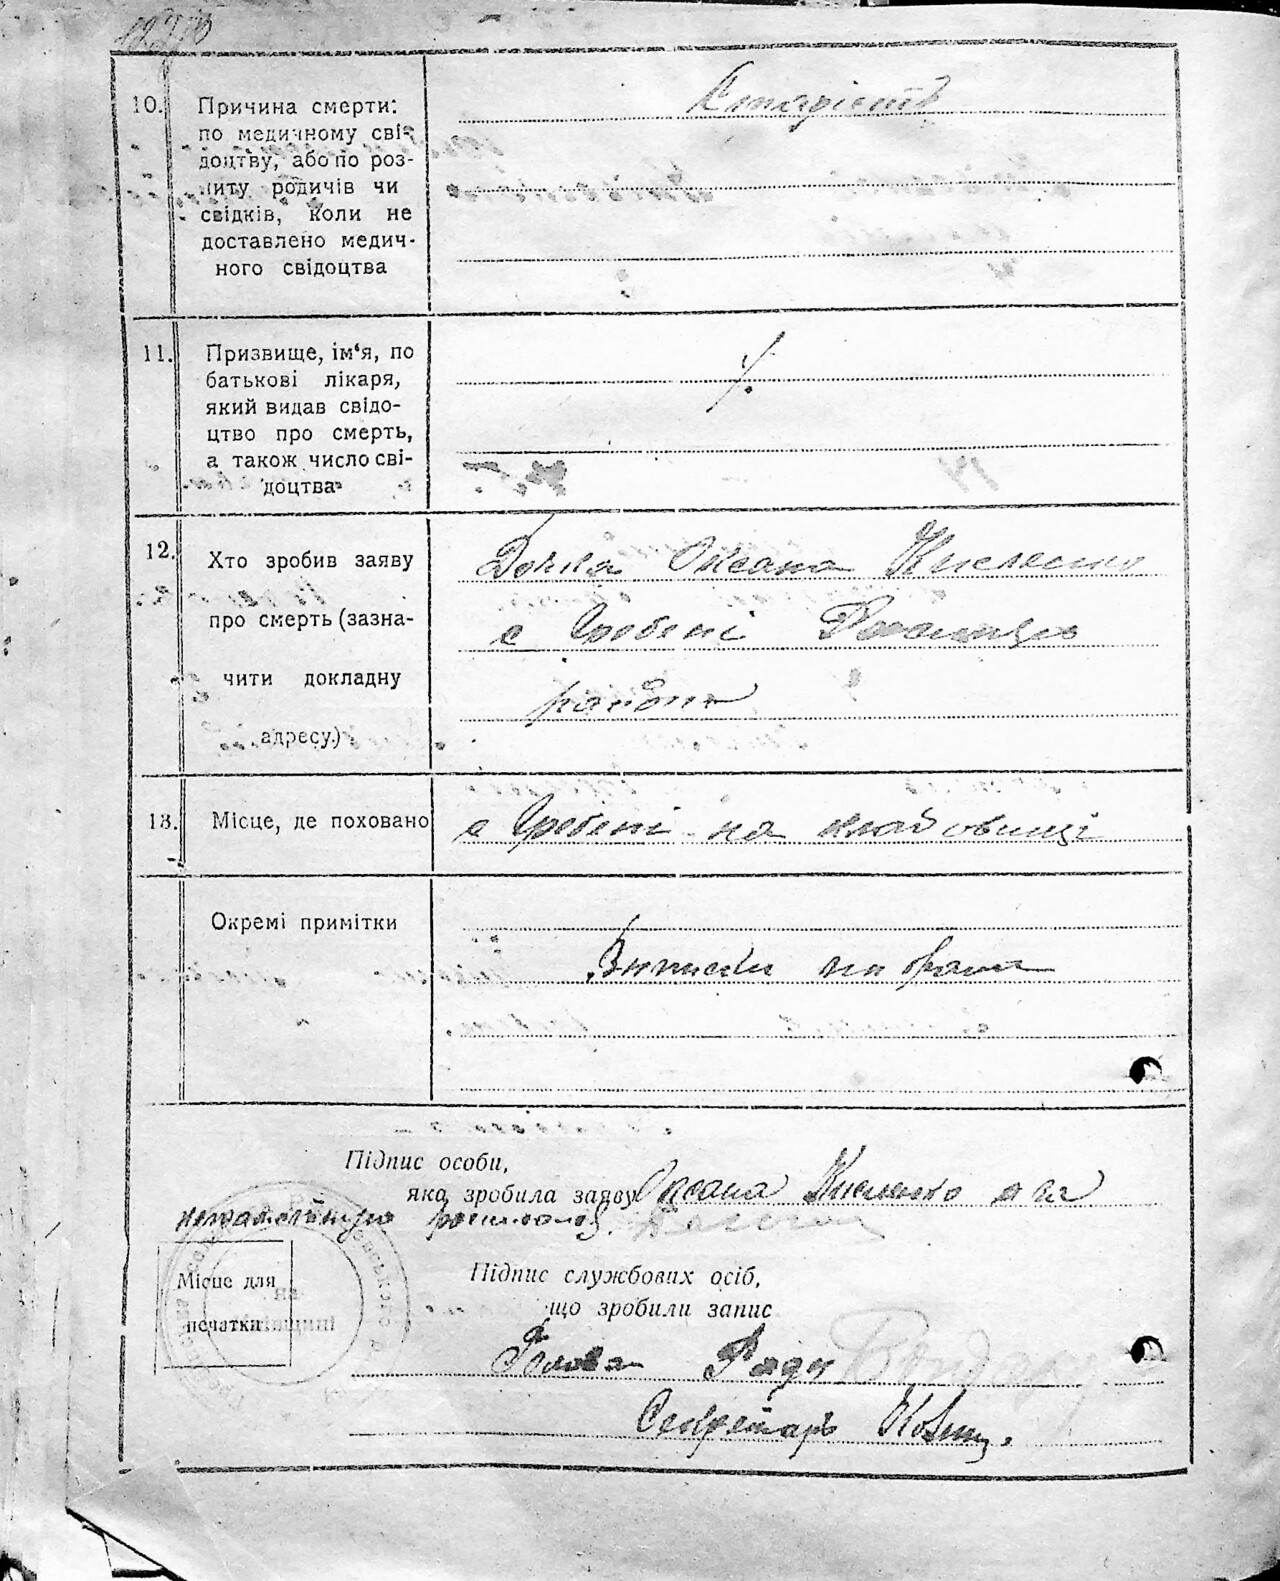 10. Причина смерти:
по медичному сві-
доцтву, або по роз-
питу родичів чи
свідків, коли не
доставлено медич-
ного свідоцтва
Старість
11. Призвище, ім'я, по
батькові лікаря,
який видав свідо-
цтво про смерть,
а також число сві-
доцтва
12. Хто зробив заяву
про смерть (зазна-
чити докладну
адресу)
Дочка Оксана Кисленко
с Гребені
району
13. Місце, де поховано
с Гребені на кладовищі
Окремі примітки
Виписки не брала
Підпис особи,
яка зробила заяву Оксана Кисленко а за
неграмотную росписалась
Місце для
печатки
Підпис службових осіб,
що зробили запис
Голова Ради
Секретарь